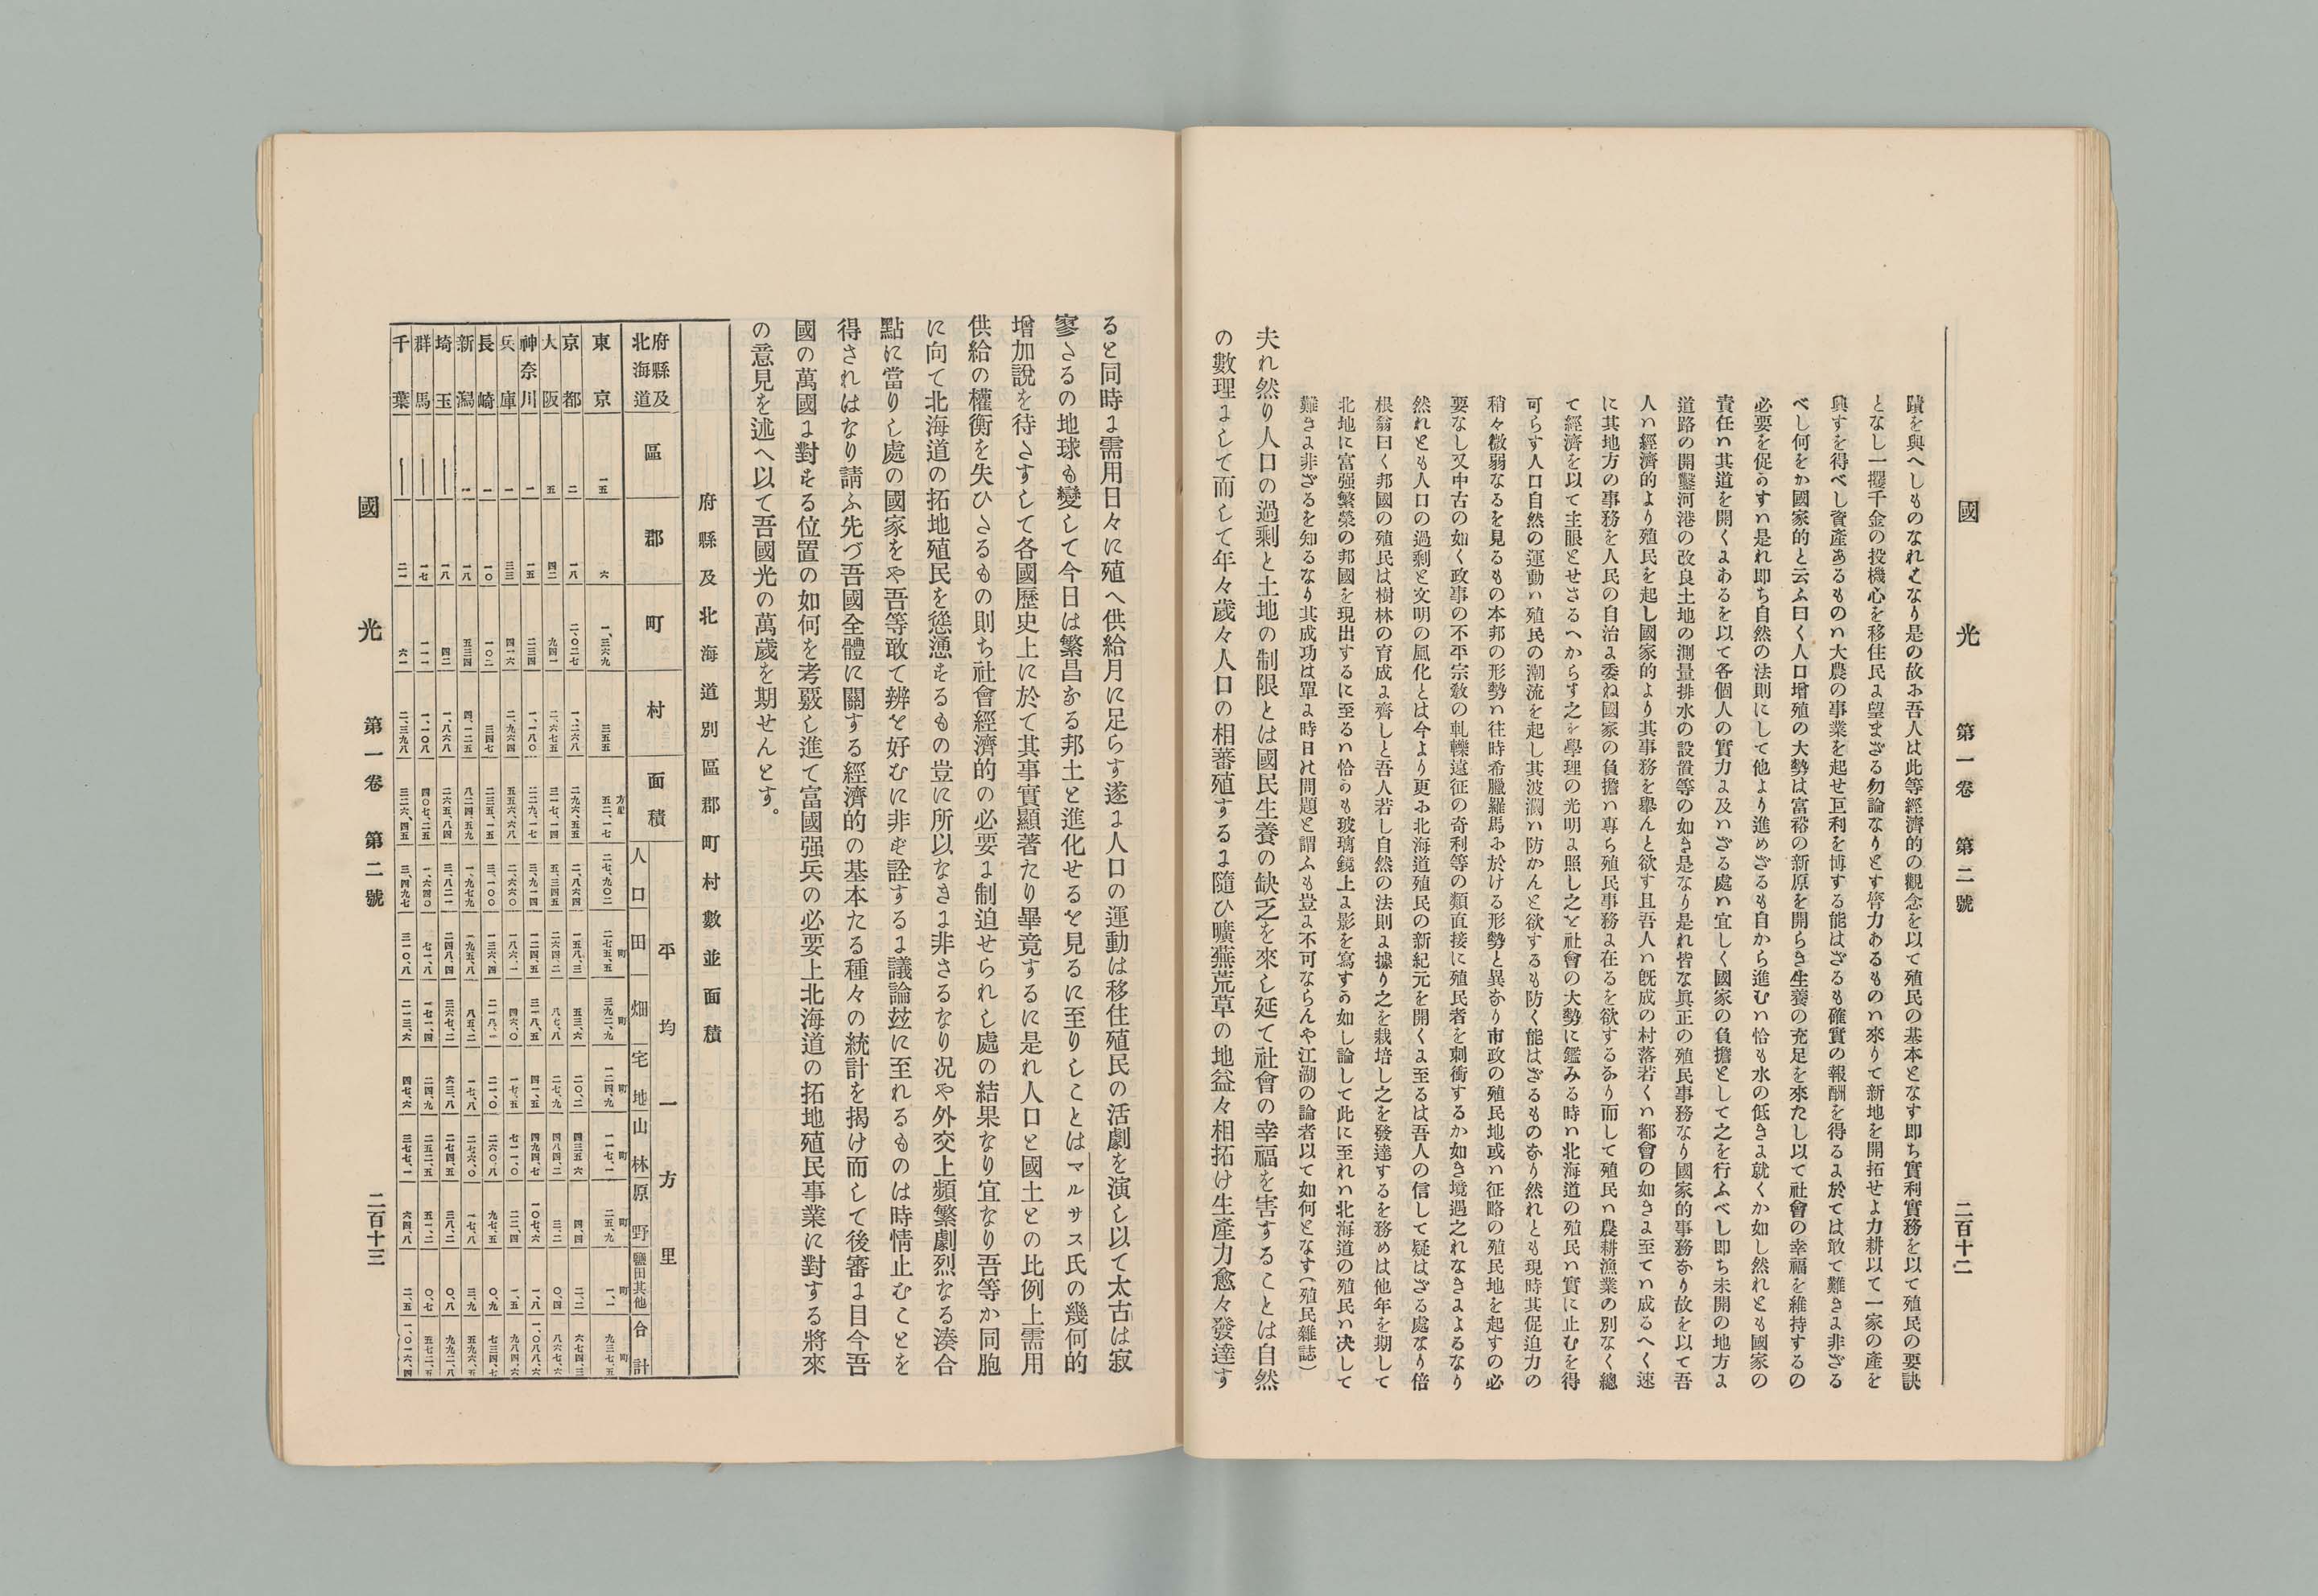 國光 第一卷 第二號 二百十二
蹟を與へしものなれとなり是の故に吾人は此等經濟的の觀念を以て殖民の基本となす即ち實利實務を以て殖民の要訣
となし一攫千金の投機心を移住民に望まざる勿論なりとす膂力あるものハ來りて新地を開拓せよ力耕以て一家の產を
興すを得べし資產あるものハ大農の事業を起せ巨利を博する能はざるも確實の報酬を得るに於ては敢て難きに非ざる
べし何をか國家的と云ふ曰く人口增殖の大勢は富裕の新原を開らき生養の充足を來たし以て社會の幸福を維持するの
必要を促かすハ是れ即ち自然の法則にして他より進めざるも自から進むハ恰も水の低きに就くか如し然れとも國家の
責任ハ其道を開くにあるを以て各個人の實力に及ハざる處ハ宜しく國家の負擔として之を行ふべし即ち未開の地方に
道路の開鑿河港の改良土地の測量排水の設置等の如き是なり是れ皆な眞正の殖民事務なり國家的事務なり故を以て吾
人ハ經濟的より殖民を起し國家的より其事務を擧んと欲す且吾人ハ旣成の村落若くハ都會の如きに至てハ成るへく速
に其地方の事務を人民の自治に委ね國家の負擔ハ專ら殖民事務に在るを欲するなり而して殖民ハ農耕漁業の別なく總
て經濟を以て主眼とせさるへからす之を學理の光明に照し之を社會の大勢に鑑みる時ハ北海道の殖民ハ實に止むを得
可らす人口自然の運動ハ殖民の潮流を起し其波瀾ハ防かんと欲するも防く能はざるものなり然れとも現時其促迫力の
稍々微弱なるを見るもの本邦の形勢ハ往時希臘羅馬に於ける形勢と異なり市政の殖民地或ハ征略の殖民地を起すの必
要なし又中古の如く政事の不平宗敎の軋轢遠征の奇利等の類直接に殖民者を刺衝するか如き境遇之れなきによるなり
然れとも人口の過剩と文明の風化とは今より更に北海道殖民の新紀元を開くに至るは吾人の信して疑はざる處なり倍
根翁曰く邦國の殖民は樹林の育成に齊しと吾人若し自然の法則に據り之を栽培し之を發達するを務めは他年を期して
北地に富强繁榮の邦國を現出するに至るハ恰かも玻璃鏡上に影を寫すか如し論して此に至れハ北海道の殖民ハ决して
難きに非ざるを知るなり其成功は單に時日の問題と謂ふも豈に不可ならんや江湖の論者以て如何となす(殖民雜誌)
夫れ然り人口の過剩と土地の制限とは國民生養の缺乏を來し延て社會の幸福を害することは自然
の數理にして而して年々歲々人口の相蕃殖するに隨ひ曠蕪荒草の地益々相拓け生產力愈々發達す
ると同時に需用日々に殖へ供給月に足らす遂に人口の運動は移住殖民の活劇を演し以て太古は寂
寥たるの地球も變して今日は繁昌なる邦土と進化せるを見るに至りしことはマルサス氏の幾何的
增加說を待たすして各國歷史上に於て其事實顯著たり畢竟するに是れ人口と國土との比例上需用
供給の權衡を失ひたるもの則ち社會經濟的の必要に制迫せられし處の結果なり宜なり吾等か同胞
に向て北海道の拓地殖民を慫慂するもの豈に所以なきに非さるなり况や外交上頻繁劇烈なる湊合
點に當りし處の國家をや吾等敢て辨を好むに非ず詮するに議論玆に至れるものは時情止むことを
得されはなり請ふ先づ吾國全體に關する經濟的の基本たる種々の統計を揭け而して後審に目今吾
國の萬國に對する位置の如何を考覈し進て富國强兵の必要上北海道の拓地殖民事業に對する將來
の意見を述へ以て吾國光の萬歲を期せんとす。
府縣及北海道別區郡町村數並面積
府縣及北海道 區 郡 町 村 面積 平均一方里
人口 田 畑 宅地 山林 原野 鹽田其他 合計
東京 一五 六 一、三六九 三五五 方里 五二、一七 二七、九〇二 町 二七五、五 町 三九二、九 町 一二四、九 町 一一七、一 町 二五、九 町 一、一 町 九三七、五
京都 二 一八 二、〇二七 一、二六八 二九六、五五 二、八六四 一五八、三 五三、六 二〇、二 四三五、六 四、四 二、二 六七四、三
大阪 五 四二 九四一 二、六七五 三一七、一四 五、三四五 二六四、二 八七、八 二七、九 四八四、二 三、二 〇、四 八六七、六
神奈川 一 一五 二三四 一、一八〇 二二九、一七 三、九一四 一二四、五 三一八、五 四一、五 四九四、七 一〇七、六 一、八 一、〇八八、六
兵庫 一 三三 四一六 二、九六四 五五六、六八 二、六六〇 一八六、一 四六、〇 一七、五 七一一、〇 二二、四 一、五 九八四、六
長崎 一 一〇 一〇二 三四七 二三五、一五 三、一〇〇 一三六、四 二一八、一 二一、〇 二六〇、八 九七、五 〇、九 七三四、七
新潟 一 一八 五三四 四、一二五 八二四、五九 一、九七九 一九五、八 八五、二 一七、八 二七六、〇 一七、八 三、九 五九六、五
埼玉 ― 一八 四二 一、八六八 二六五、八四 三、八二一 二四八、四 三六七、二 六三、八 二七四、五 三八、二 〇、八 九九二、八
群馬 ― 一七 一一一 一、一〇八 四〇七、二五 一、六四〇 七一、八 一七一、四 二四、九 二五二、五 五一、二 〇、七 五七二、五
千葉 ― 二一 六一 二、三九八 三二六、四五 三、四九七 三一〇、八 二一三、六 四七、六 三七七、一 六四、八 二、五 一、〇一六、四
國光 第一卷 第二號 二百十三